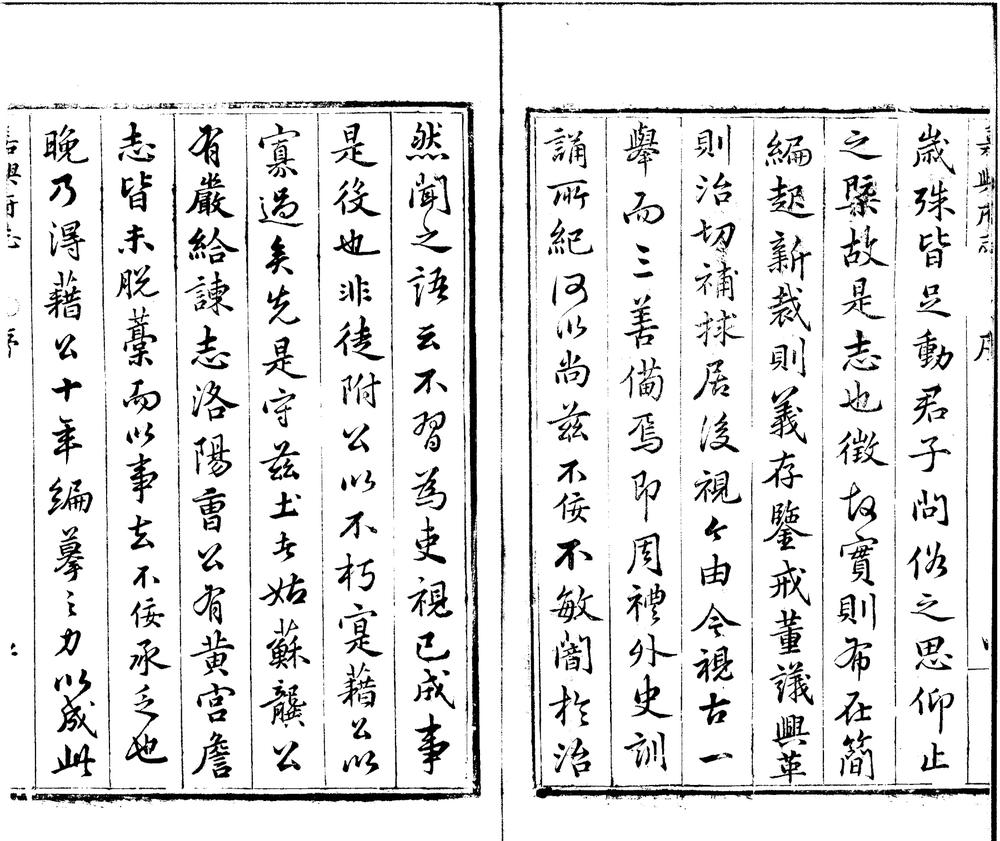 嘉興府志 序
歲殊皆足動君子問俗之思仰止
之槩故是志也徵故實則布在簡
編起新裁則義存鑒戒董議興革
則治切補捄居後視今由今視古一
舉而三善備焉即周禮外史訓
誦所紀何以尚茲不佞不敏闇於治
然聞之語云不習為吏視已成事
是役也非徒附公以不朽寔藉公以
寡過矣先是守茲土者姑蘇龔公
有嚴給諫志洛陽曹公有黃宮詹
志皆未脫藳而以事去不佞承乏也
晚乃得藉公十年編摹之力以成此
嘉興府志 序